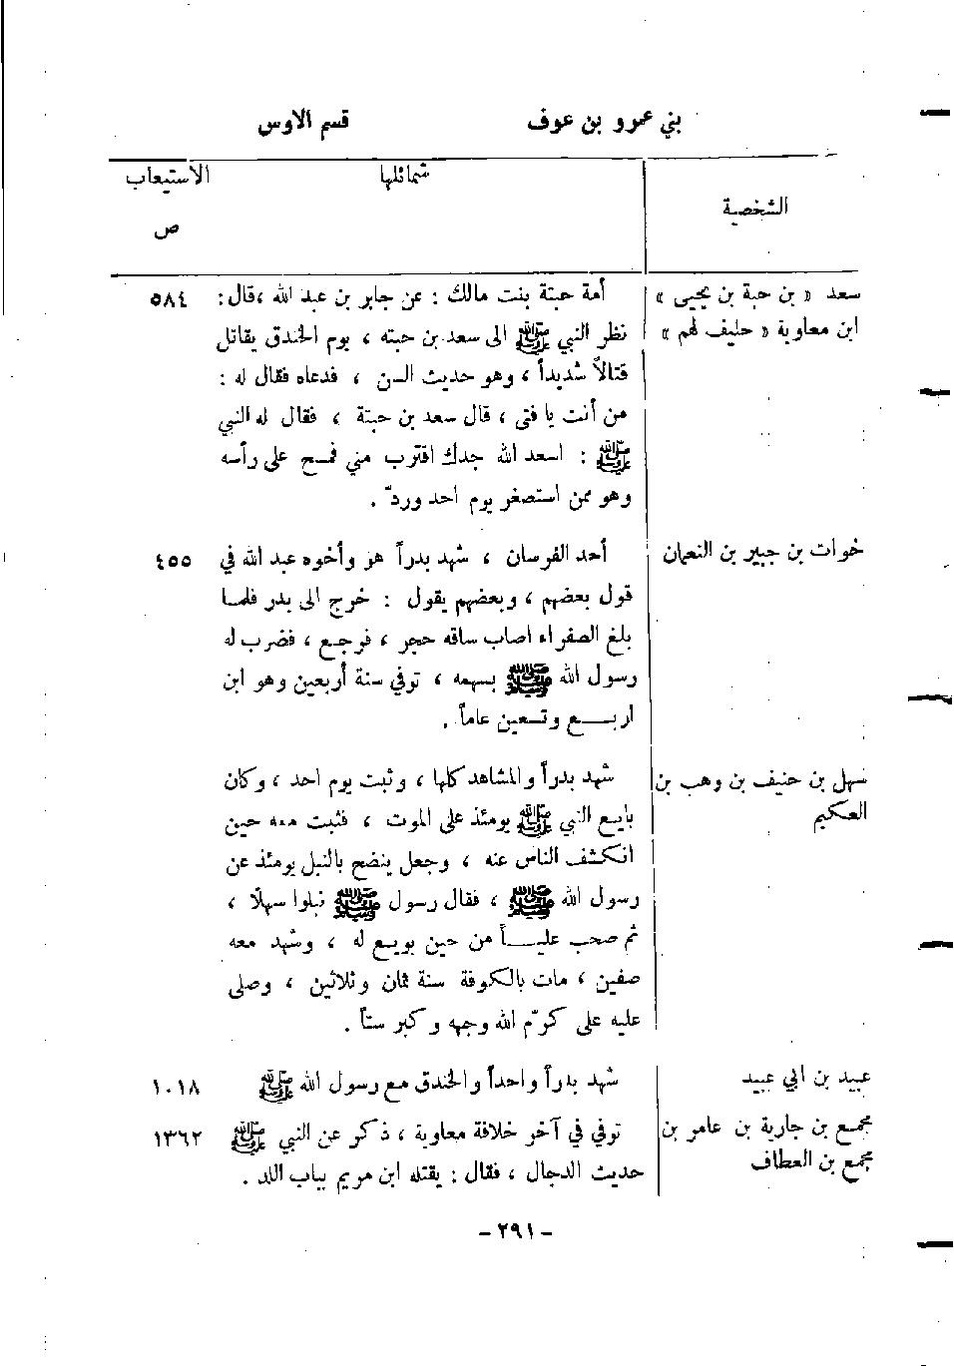 بني عمرو بن عوف
قسم الاوس
الشخصية
شمائلها
الاستيعاب
ص
سعد « بن حبة بن يحيى »
ابن معاوية « حليف لهم »
أمة حبتة بنت مالك : عن جابر بن عبد الله ،قال :
نظر النبي ﷺ الى سعد بن حبته ، يوم الخندق يقاتل
قتالاً شديداً ، وهو حديث السن ، فدعاه فقال له :
من أنت يا فتى ، قال سعد بن حبتة ، فقال له النبي
ﷺ : اسعد الله جدك اقترب مني فمسح على رأسه
وهو ممن استصغر يوم احد وردّ .
٥٨٤
خوات بن جبير بن النعمان
أحد الفرسان ، شهد بدراً هو وأخوه عبد الله في
قول بعضهم ، وبعضهم يقول : خرج الى بدر فلما
بلغ الصفراء اصاب ساقه حجر ، فرجع ، فضرب له
رسول الله ﷺ بسهمه ، توفي سنة أربعين وهو ابن
اربـــع وتسعين عاماً .
٤٥٥
سهل بن حنيف بن وهب بن
العكيم
شهد بدراً والمشاهد كلها ، وثبت يوم احد ، وكان
بايع النبي ﷺ يومئذ على الموت ، فثبت معه حين
انكشف الناس عنه ، وجعل ينضح بالنبل يومئذ عن
رسول الله ﷺ ، فقال رسول ﷺ نبلوا سهلًا ،
ثم صحب عليـــاً من حين بويع له ، وشهد معه
صفين ، مات بالكوفة سنة ثمان وثلاثين ، وصلى
عليه على كرّم الله وجهه وكبر ستاً .
عبيد بن ابي عبيد
شهد بدراً واحداً والخندق مع رسول الله ﷺ
١٠١٨
مجمع بن جارية بن عامر بن
مجمع بن العطاف
توفي في آخر خلافة معاوية ، ذكر عن النبي ﷺ
حديث الدجال ، فقال : يقتله ابن مريم بباب اللد .
١٣٦٢
- ٢٩١ -